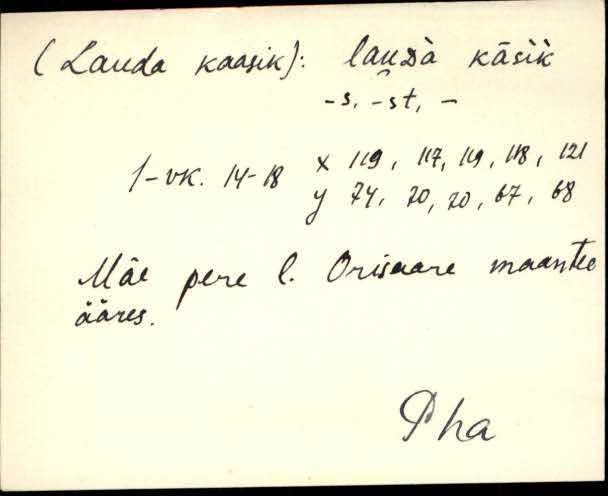 (Lauda kaasik): lauᴅà kāsìk
-s, -st, –
1-vk. 14-18 x 119, 117, 119, 118, 121
y 74, 70, 70, 67, 68
Mäe pere l. Orisaare maantee
ääres.
Pha